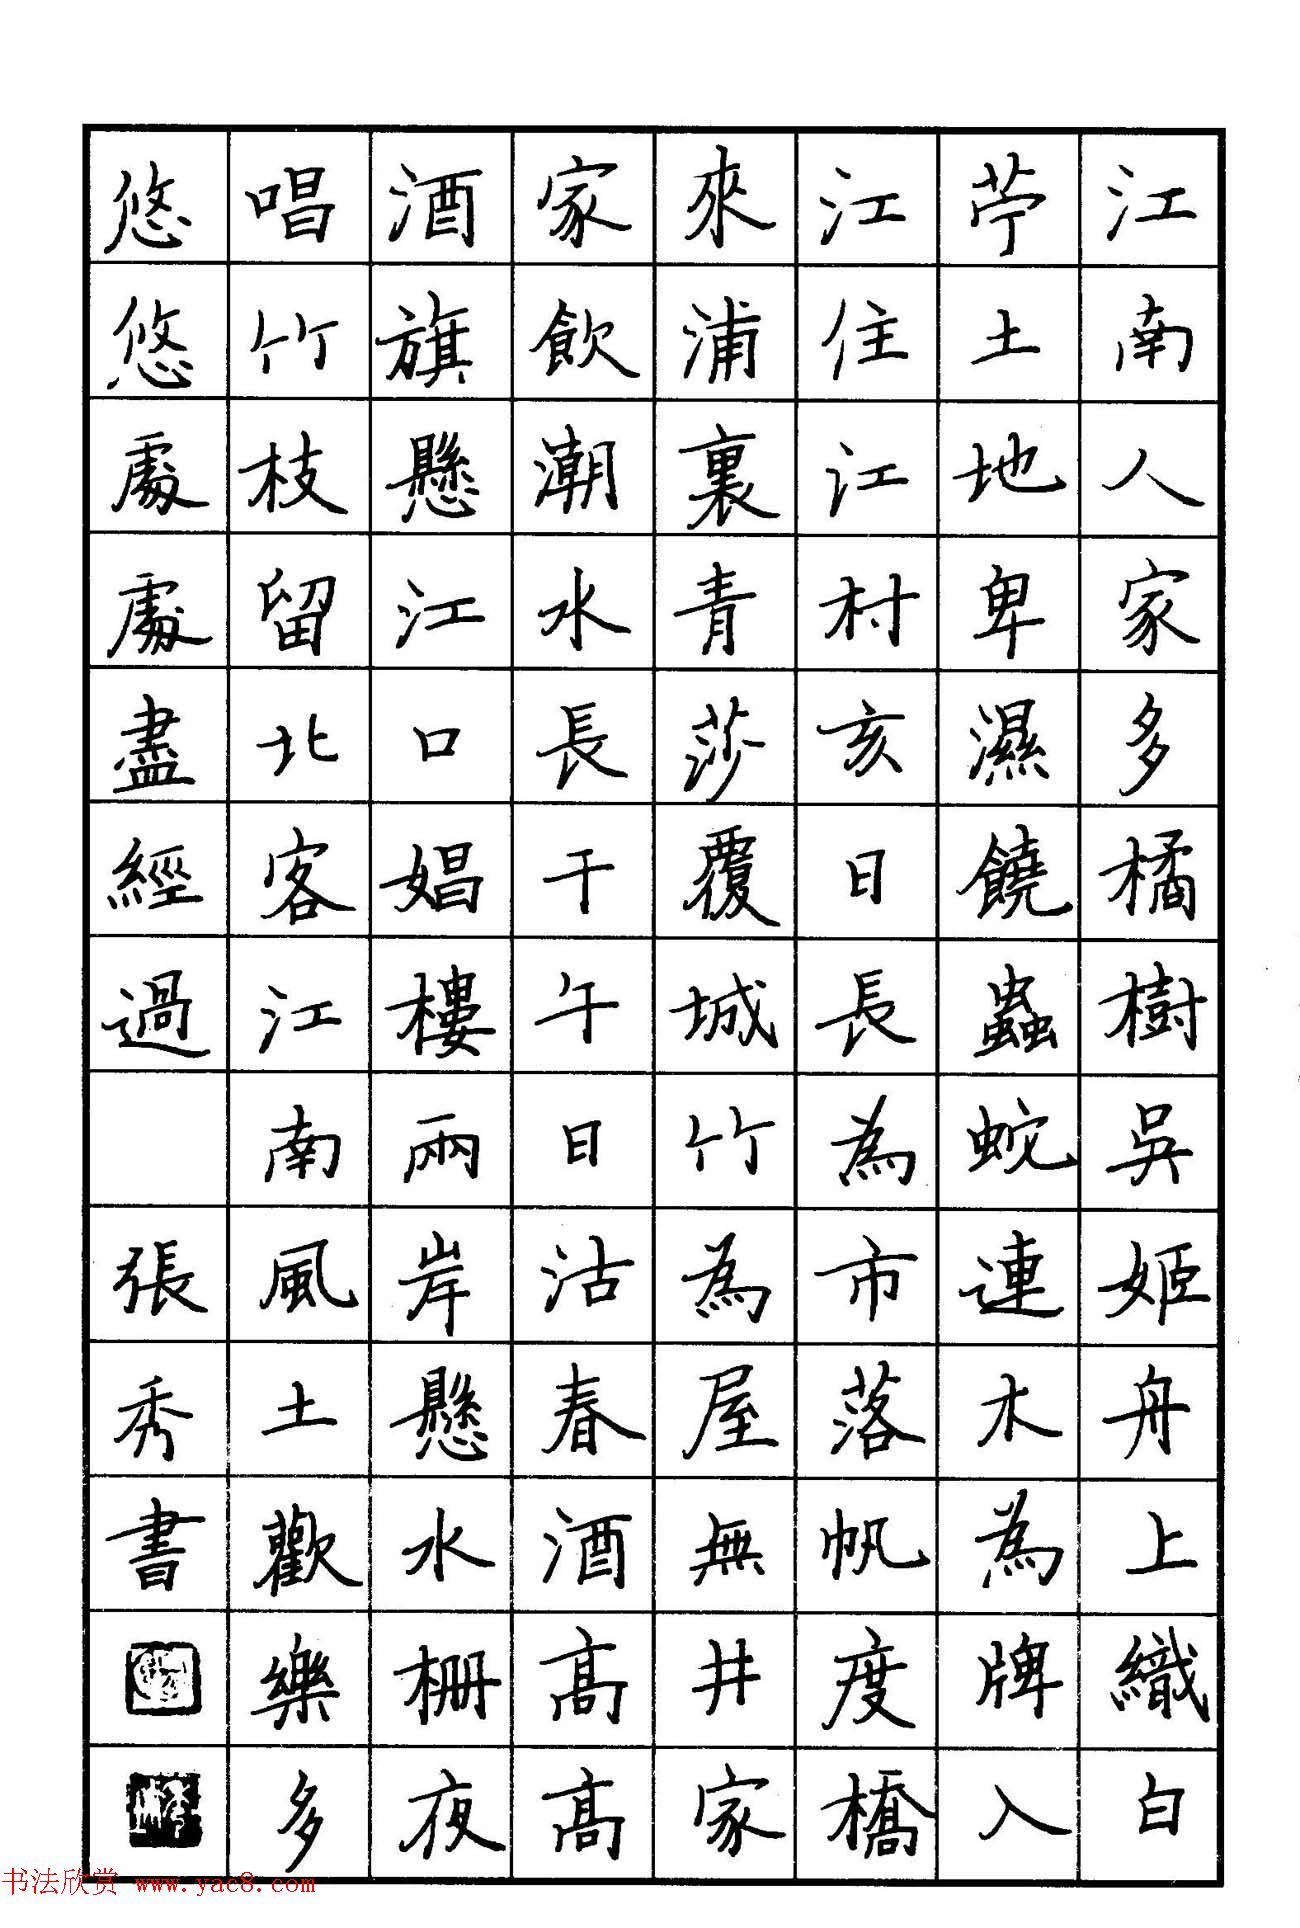 江南人家多橘樹吳姬舟上織白
苧土地卑濕饒蟲蛇連木為牌入
江住江村亥日長為市落帆度橋
來浦裏青莎覆城竹為屋無井家
家飲潮水長干午日沽春酒高高
酒旗懸江口娼樓兩岸懸水柵夜
唱竹枝留北客江南風土歡樂多
悠悠處處盡經過 張秀書
书法欣赏 www.yac8.com